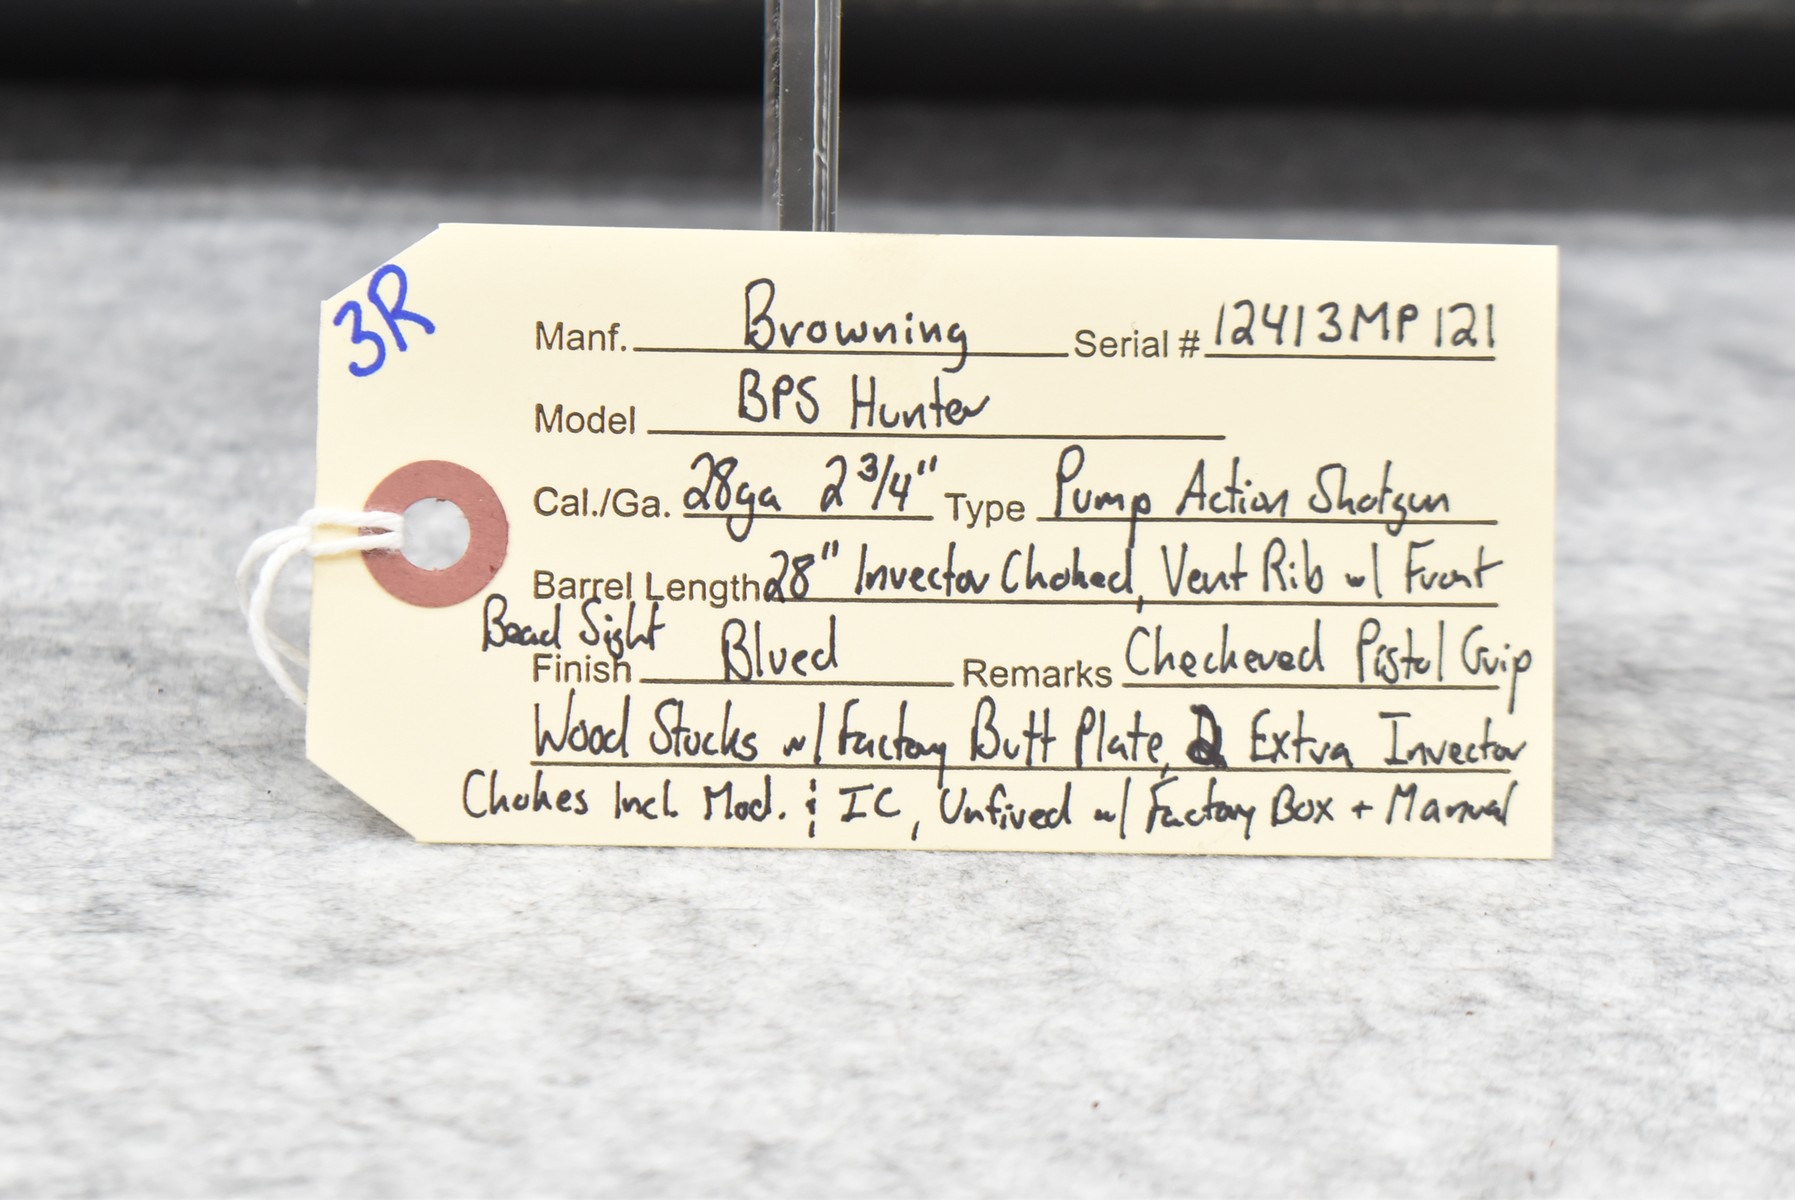 3R
Manf. Browning Serial # 12413MP121
Model BPS Hunter
Cal./Ga. 28ga 2 3/4" Type Pump Action Shotgun
Barrel Length 28" Invector Choked, Vent Rib w/ Front
Bead Sight
Finish Blued Remarks Checkered Pistol Grip
Wood Stocks w/ Factory Butt Plate, 2 Extra Invector
Chokes Incl. Mod. & IC, Unfired w/ Factory Box + Manual